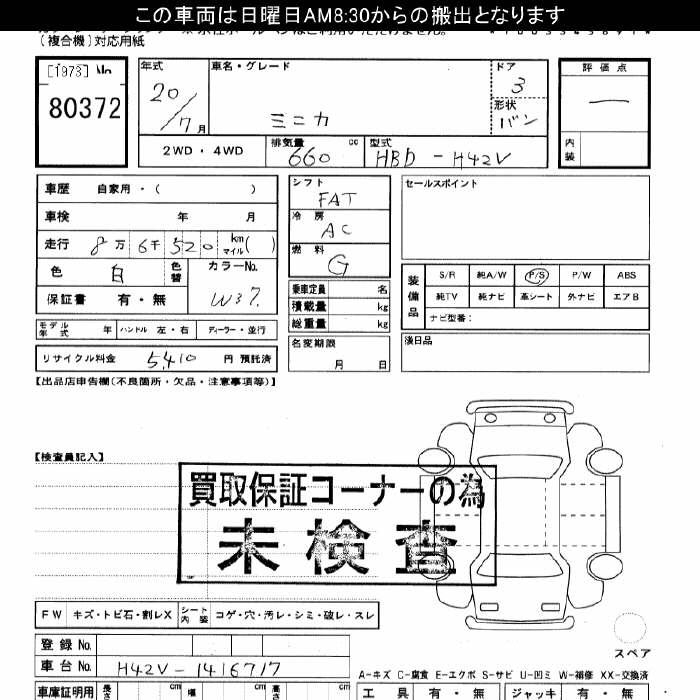 この車両は日曜日AM8:30からの搬出となります
(複合機)対応用紙
[1973] No.
80372
年式
20/7月
車名・グレード
ミニカ
ドア
3
形状
バン
評価点
—
内装
2WD・4WD
排気量
660 cc
型式
HBD-H42V
車歴 自家用・( )
車検 年 月
走行 8万6千520 km マイル( )
色 白 色替
カラーNo.
W37.
保証書 有・無
シフト
FAT
冷房
AC
燃料
G
乗車定員 名
積載量 kg
総重量 kg
名変期限
月 日
セールスポイント
装備品
S/R 純A/W P/S P/W ABS
純TV 純ナビ 革シート 外ナビ エアB
ナビ型番:
モデル年式 年 ハンドル 左・右 ディーラー・並行
リサイクル料金 5,410 円 預託済
【出品店申告欄(不良箇所・欠品・注意事項等)】
【検査員記入】
買取保証コーナーの為
未検査
FW キズ・トビ石・割レX シート内装 コゲ・穴・汚レ・シミ・破レ・スレ
スペア
登録No.
車台No. H42V-1416717
A-キズ C-腐食 E-エクボ S-サビ U-凹ミ W-補修 XX-交換済
車庫証明用 長さ cm 幅 cm 高さ cm
工具 有・無 ジャッキ 有・無